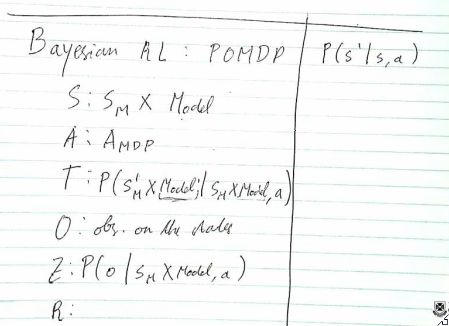 Bayesian RL : POMDP P(s'|s,a)
S : S_M X Model
A : A_MDP
T : P(S'_M X Model'| S_M X Model, a)
O : obs. on the states
Z : P(o | S_M X Model, a)
R :